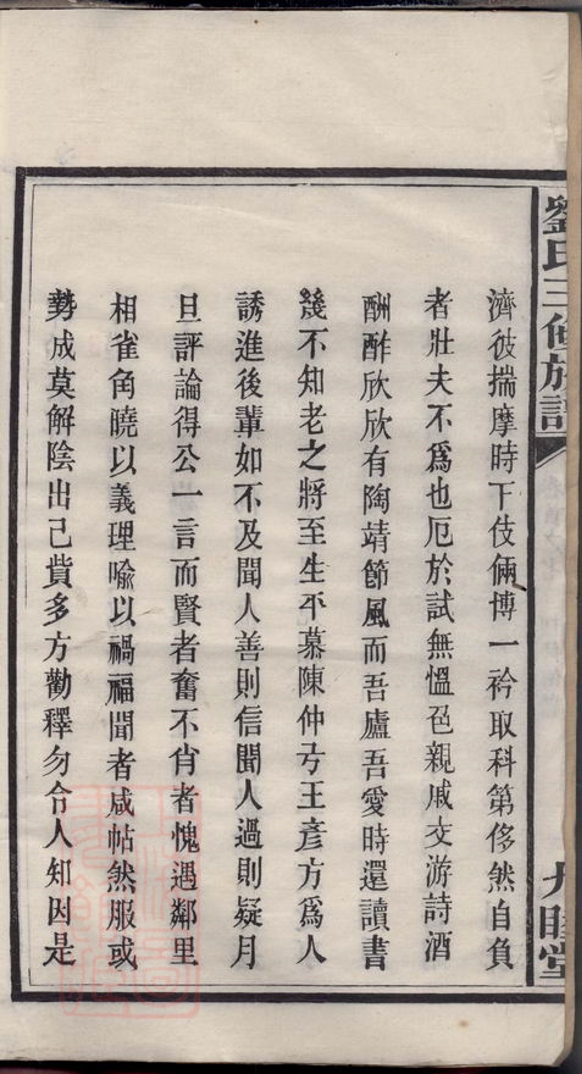 劉氏三修族譜
濟彼揣摩時下伎倆博一衿取科第侈然自負
者壯夫不爲也厄於試無慍色親戚交游詩酒
酬酢欣欣有陶靖節風而吾廬吾愛時還讀書
幾不知老之將至生平慕陳仲弓王彥方爲人
誘進後輩如不及聞人善則信聞人過則疑月
旦評論得公一言而賢者奮不肖者愧遇鄰里
相雀角曉以義理喻以禍福聞者咸帖然服或
勢成莫解陰出己貲多方勸釋勿令人知因是